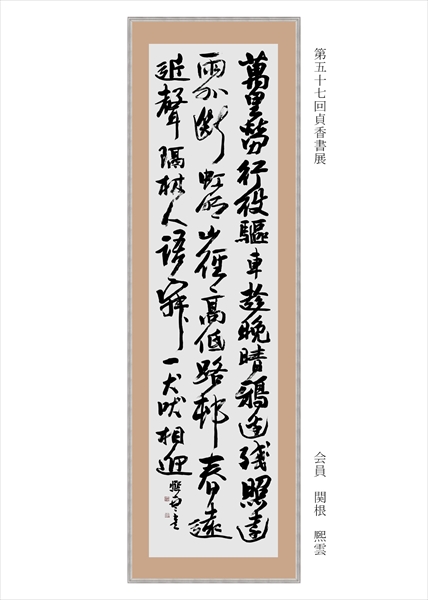 第五十七回貞香書展
会員　関根　熙雲
萬里勞行役驅車趁晚晴鴉邊殘照遠
雨外斷虹明山徑高低路邨春遠
近聲隔樹人語寂一犬吠相迎